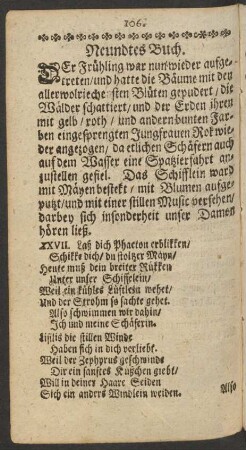 106.
Neundtes Buch.
DEr Frühling war nun wieder aufge-
treten/und hatte die Bäume mit den
allerwolrieche sten Blüten gepudert/die
Wälder schattiert/und der Erden ihren
mit gelb/roth/und andern bunten Far-
ben eingesprengten Jungfrauen Rok wie-
der angezogen/da etlichen Schäfern auch
auf dem Wasser eine Spatzierfahrt an-
zustellen gefiel. Das Schifflein ward
mit Mäyen bestekt/mit Blumen aufge-
putzt/und mit einer stillen Music versehen/
darbey sich insonderheit unser Damon
hören ließ.
XXVII. Laß dich Phaeton erblikken/
Schikke dich/du stoltzer Mäyn/
Heute muß dein breiter Rükken
Unter unser Schiffelein/
Weil ein kühles Lüftlein wehet/
Und der Strohm so sachte gehet.
Also schwimmen wir dahin/
Ich und meine Schäferin.
Lisilis die stillen Winde
Haben sich in dich verliebt.
Weil der Zephyrus geschwinde
Dir ein sanftes Küßchen giebt/
Will in deiner Haare Seiden
Sich ein anders Windlein weiden.
Also